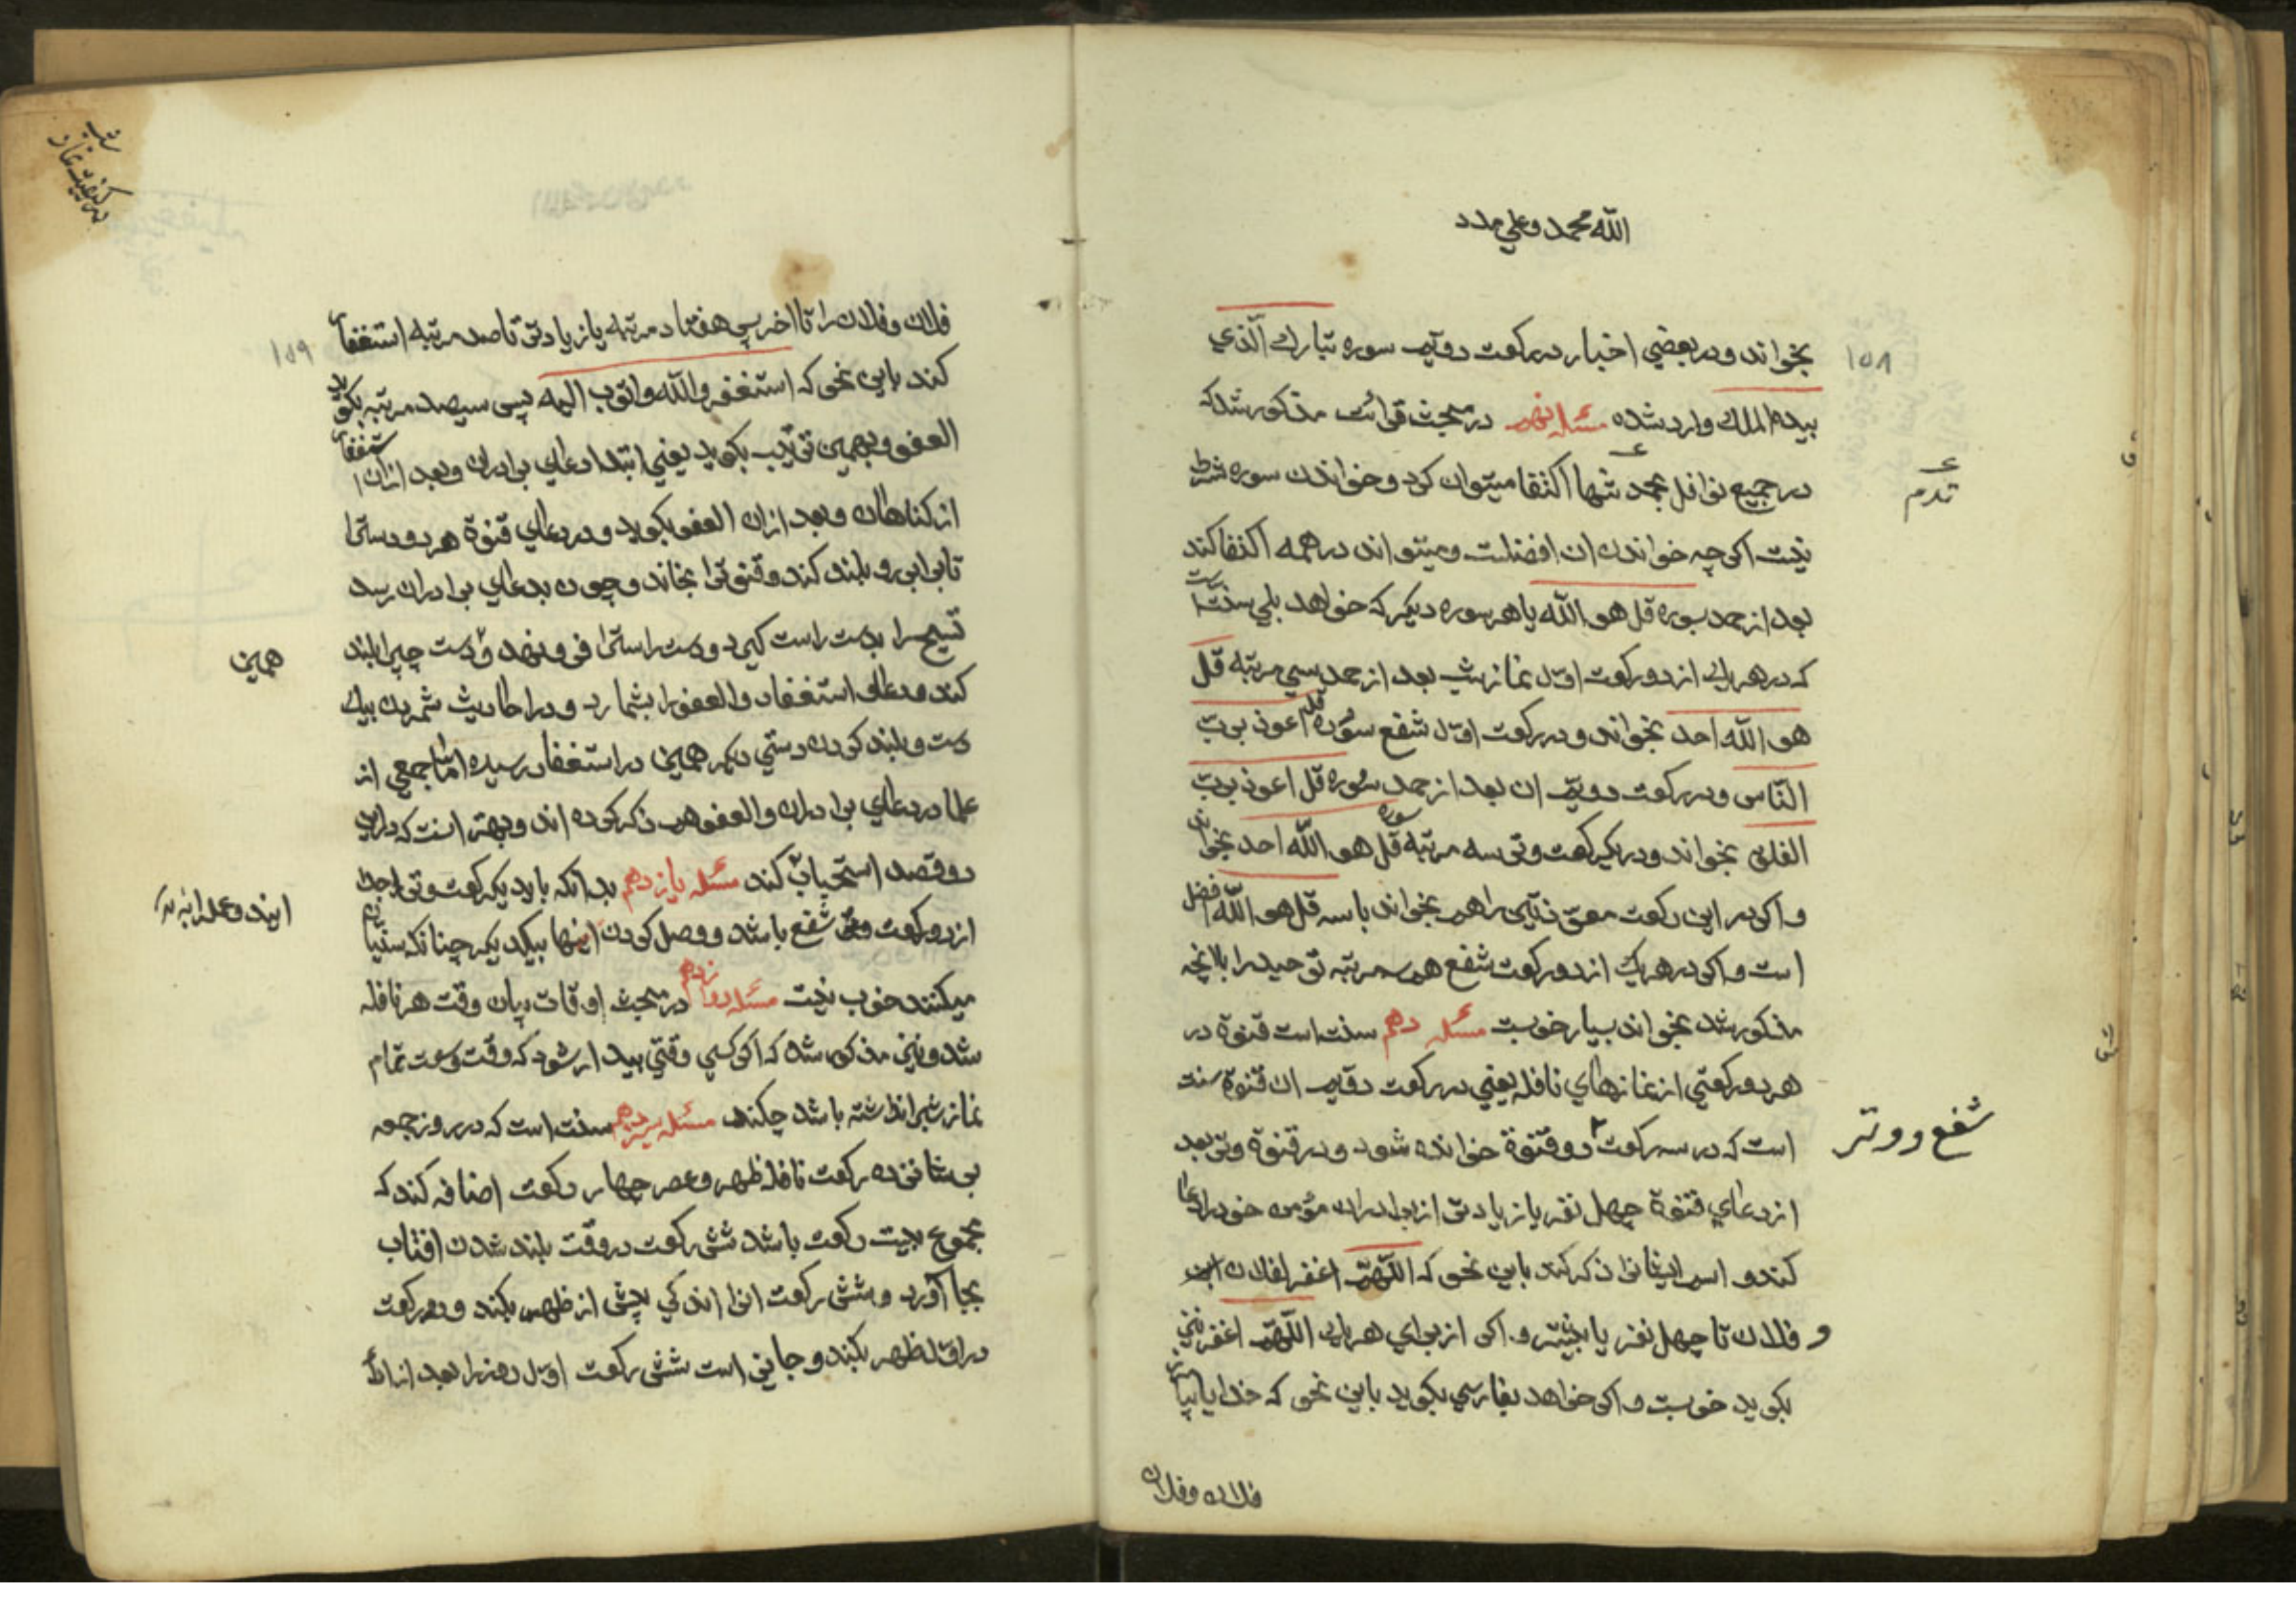 الله محمد و علي مدد
١٥٨
بخواند و در بعضي اخبار در ركعت دويم سوره تبارك الّذي
بيده الملك وارد شده مسئله نهم در مبحث قرائت مذكور شد كه
در جميع نوافل بحمد تنها اكتفا ميتوان كرد و خواندن سوره شرط
نيست اكر چه خواندن ان افضلست و ميتواند در همه اكتفا كند
بعد از حمد بسوره قل هو الله يا هر سوره ديكر كه خواهد بلي سنّت است
كه در هريك از دو ركعت اوّل نماز شب بعد از حمد سي مرتبه قل
هو الله احد بخواند و در ركعت اوّل شفع سوره قل اعوذ بربّ
النّاس و در ركعت دويّم ان بعد از حمد سوره قل اعوذ بربّ
الفلق بخواند و در يكركعت وتر سه مرتبه سوره قل هو اللّه احد بخواند
و اكر در اين ركعت معوّذتين را هم بخواند با سه قل هو اللّه افضل
است و اكر در هريك از دو ركعت شفع هم سه مرتبه توحيد را با انچه
مذكور شد بخواند بسيار خوبست مسئله دهم سنت است قنوة در
هر دو ركعتي از نمازهاي نافله يعني در ركعت دويم ان قنوة سنت
است كه در سه ركعت دو قنوة خوانده شود و در قنوة وتر بعد
شفع و وتر
از دعاي قنوة چهل نفر يا زيادتر از برادران مؤمن خود را دعا
كند و اسم ايشانرا ذكر كند باين نحو كه اللّهمّ اغفر لفلان ابن
و فلان تا چهل نفر يا بيشتر و اكر از براي هريك اللّهمّ اغفر
بكويد خوبست و اكر خواهد بفارسي بكويد باين نحو كه خدايا بيامرز
فلان و فلان
در كيفيت نماز شب
١٥٩
فلان و فلان را تا اخر پس هفتاد مرتبه يا زيادتر تا صد مرتبه استغفار
كند باين نحو كه استغفر الله و اتوب اليه پس سيصد مرتبه بكويد
العفو و بهمين ترتيب بكويد يعني ابتدا دعاي برادران و بعد ازان استغفار
از كناهان و بعد ازان العفو بكويد و در دعاي قنوة هر دو دسترا
تا برابر رو بلند كند و قنوترا بخاند و چون بدعاي برادران رسد
تسبيح را بدست راست كيرد و دست راسترا فرو نهد و دست چپرا بلند
همين
كند و دعا و استغفار و العفو را بشمارد و در احاديث شمردن بيك
دست و بلند كردن دستي ديكر همين در استغفار رسيده امّا جمعي از
علما در دعاي برادران و العفو هم ذكر كرده اند و بهتر انست كه دراين
دو قصد استحباب كند مسئله يازدهم بدانكه بايد يكركعت وتر را جدا
از دو ركعت شفع باشد و وصل كردن اينها بيكديكر چنانكه سنّيان
ميكنند خوب نيست مسئله دوازدهم در مبحث اوقات بيان وقت هر نافله
شد و نيز مذكور شد كه اكر كسي وقتي بيدار شود كه وقت وسعت تمام
نماز شبرا نداشته باشد چكند مسئله سيزدهم سنت است كه در روز جمعه
بر شانزده ركعت نافله ظهر و عصر چهار ركعت اضافه كند كه
مجموع بيست ركعت باشد شش ركعت در وقت بلند شدن افتاب
بجا آورد و شش ركعت انرا اندكي پيش از ظهر بكند و دو ركعت
در اوّل ظهر بكند و جايز است شش ركعت اوّل روز را بعد از